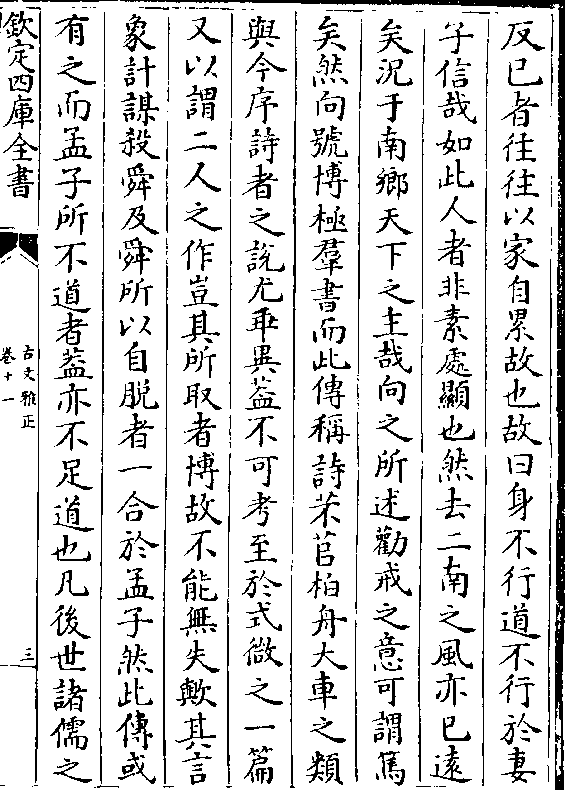 反已者往往以家自累故也故曰身不行道不行於妻
子信哉如此人者非素處顯也然去二南之風亦已遠
矣況于南鄉天下之主哉向之所述勸戒之意可謂篤
矣然向號博極羣書而此傳稱詩芣苢柏舟大車之類
與今序詩者之說尤乖異葢不可考至於式微之一篇
又以謂二人之作豈其所取者博故不能無失歟其言
象計謀殺舜及舜所以自脫者一合於孟子然此傳或
有之而孟子所不道者葢亦不足道也凡後世諸儒之
欽定四庫全書
古文雅正
卷十一
三